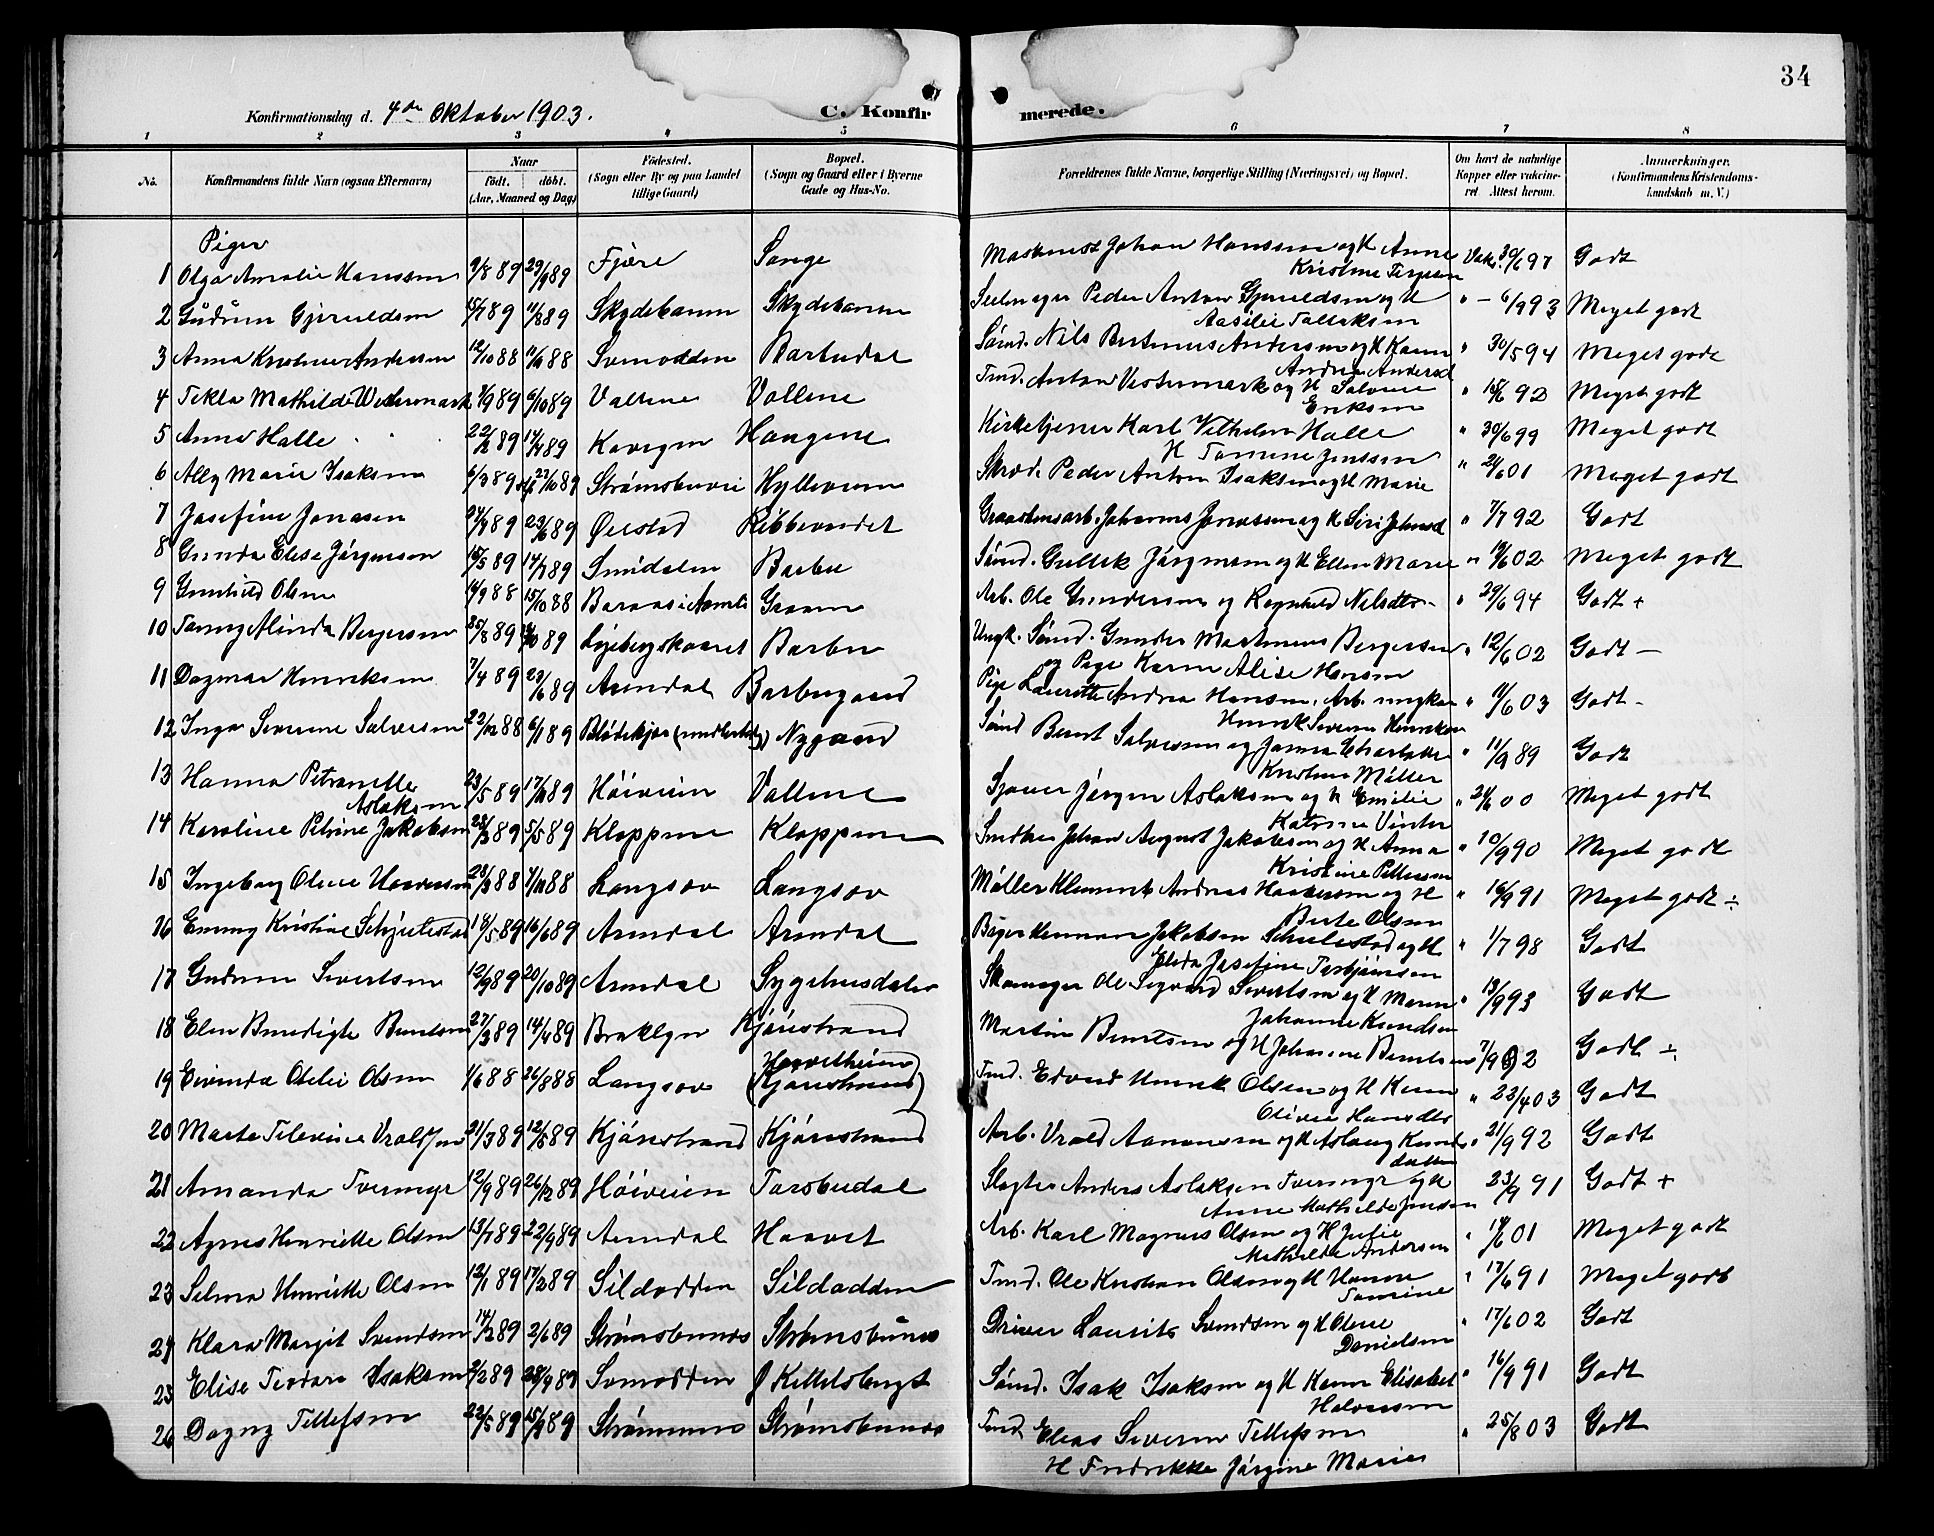 34
Konfirmationsdag d. 4de Oktober 1903.
C. Konfirmerede.
1 2 3 4 5 6 7 8
No. Konfirmandens fulde Navn (ogsaa Efternavn) Naar født. døbt. (Aar, Maaned og Dag) Fødested. (Sogn eller By og paa Landet tillige Gaard) Bopæl. (Sogn og Gaard eller i Byerne Gade og Hus-No. Forældrenes fulde Navne, borgerlige Stilling (Næringsvei) og Bopæl. Om havt de naturlige Kopper eller vakcineret. Attest herom. Anmærkninger. (Konfirmandens Kristendomskundskab m. V.)
Piger
1 Olga Amalie Hanssen 9/8 89 29/9 89 Fjære Songe Maskinist Johan Hanssen og H Anne Kristine Terjesen Vaks. 30/6 97 Godt
2 Gudrun Gjeruldsen 15/7 89 11/8 89 Skydebanen Skydebanen Peder Anton Gjeruldsen og H Aasilie Tallaksen " — 6/9 93 Meget godt
3 Anna Kristine Andersen 12/10 88 88 Svinodden Barbudal Sømd. Nils Andersen og H Karen Andrea Andersd " 30/5 94 Meget godt
4 Tekla Mathilde Westermark 7/9 89 6/10 89 Vallene Vollene Tmd. Anton Vestermark og H Salvine Eriksen " 92 Meget godt
5 Anna Halle 22/2 89 14/4 89 Haugene Kirketjener Karl Vilhelm Halle H Tomine Jenssen " 30/6 99 Meget godt
6 Ally Marie Isaksen 6/3 89 27/10 89 Strømsbuvei Hylleveien Skræd. Peder Anton Isaksen og H Marie " 01 Meget godt
7 Josefine Jonassen 89 23/6 89 Øiestad Ribbevandet Graastensarb. Johannes Jonassen og H Siri Johnsd " 7/7 92 Godt
8 Gunda Elise Jørgensen 15/5 89 14/7 89 Smidalen Barbu Sømd. Gullek Jørgensen og H Ellen Marie " 02 Meget godt
9 Gunhild Olsen 14/9 88 15/10 88 Baraas i Aamli Graaen Arb. Ole Gundersen og Ragnhild Nilsdtr. " 29/6 94 Godt +
10 Tomy Alinda Bergersen 25/8 89 89 Barbu Ungk. Sømd. Gunder Martinius Bergersen og Pige Karen Alise Hansen " 12/6 02 Godt —
11 Dagmar Henriksen 7/4 89 23/6 89 Arendal Barbugaard Pige Lauritte Andrea Hansen. Arb. ungkar Henrik Severin Henriksen " 03 Godt -
12 Inga Severine Salvesen 22/12 88 6/1 89 Blødekjær Nygaard Sømd Bernt Salvesen og Janna Charlotte Kristine Møller " 11/9 89 Godt
13 Hanna Petranette Aslaksen 23/5 89 89 Høiveien Vollene Sjauer Jørgen Aslaksen og H Emilie Katrine Vinter " 00 Meget godt
14 Karoline Petrine Jakobsen 28/3 89 5/5 89 Kloppene Kloppene Snedker Johan August Jakobsen og H Anna Kristine Pettersen " 10/9 90 Meget godt
15 Ingeborg Olene Haaversen 88 88 Langsæv Langsæv Møller Klemmet Andreas Haaversen og H Berte Olsen " 16/9 91 Meget godt ÷
16 Emmy Kristine Schjulestad 18/5 89 16/6 89 Arendal Arendal Herman Jakobsen Schulestad og H Elida Josefine Torbjørnsen " 1/7 98 Godt
17 Gudrun Sivertsen 12/9 89 20/10 89 Arendal Sygehusdalen Skomager Ole Sigvard Sivertsen og H Maren Johanne Knudsen " 13/9 93 Godt
18 Elen Benedigte Berntsen 27/2 89 14/4 89 Broklyn Kjønstrand Martin Berntsen og H Johanne Berntsen 7/9 92 Godt ÷
19 Eivinda Otelie Olsen 1/6 88 26/8 88 Langsæv Havetheien (Kjønstrand) Tmd. Edvard Henrik Olsen og H Karen Olivie Hansdtr " 23/4 03 Godt
20 Marte Televine Vraldsen 21/3 89 12/5 89 Kjønstrand Kjønstrand Arb. Vrald Aanensen og H Aslaug Knudsdatter " 21/9 92 Godt
21 Amanda Tvermyr 12/9 89 26/12 89 Høiveien Torsbudal Slagter Anders Aslaksen Tvermyr og H Anne Mathilde Jensen 23/9 91 Godt +
22 Agnes Henriette Olsen 13/7 89 22/9 89 Arendal Haavet Arb. Karl Magnus Olsen og H Julie Mathilde Andersen " 01 Meget godt
23 Selma Henriette Olsen 12/1 89 17/2 89 Sildodden Sildodden Tmd. Ole Kristian Olsen og H Hanne Tomine " 17/6 91 Meget godt
24 Klara Margit Svendsen 14/2 89 2/6 89 Strømsbunes Strømsbunes Driver Lauritz Svendsen og H Olene Danielsen " 17/6 02 Godt
25 Elise Teodora Isaksen 2/2 89 28/4 89 Svinodden J Kittelsbugt Sømd. Isak Isaksen og H Karen Elisabet Halvorsen " 16/9 91 Godt
26 Dagny Tellefsen 22/5 89 15/9 89 Strømmene Strømsbunes Tmd Elias Severin Tellefsen H Fredrikke Jørgine Marie " 25/8 03 Godt